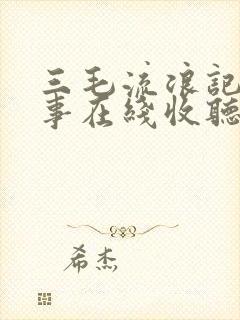 三毛流浪記
事在綫收聽
希杰